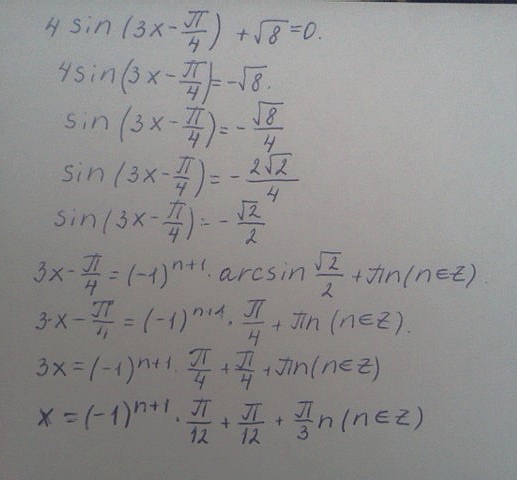 4 sin (3x - π/4) + √8 = 0.
4 sin (3x - π/4) = -√8.
sin (3x - π/4) = - √8/4
sin (3x - π/4) = - 2√2/4
sin (3x - π/4) = - √2/2
3x - π/4 = (-1)ⁿ⁺¹ · arcsin √2/2 + πn (n∈Z).
3x - π/4 = (-1)ⁿ⁺¹ · π/4 + πn (n∈Z).
3x = (-1)ⁿ⁺¹ · π/4 + π/4 + πn (n∈Z)
x = (-1)ⁿ⁺¹ · π/12 + π/12 + π/3 n (n∈Z)